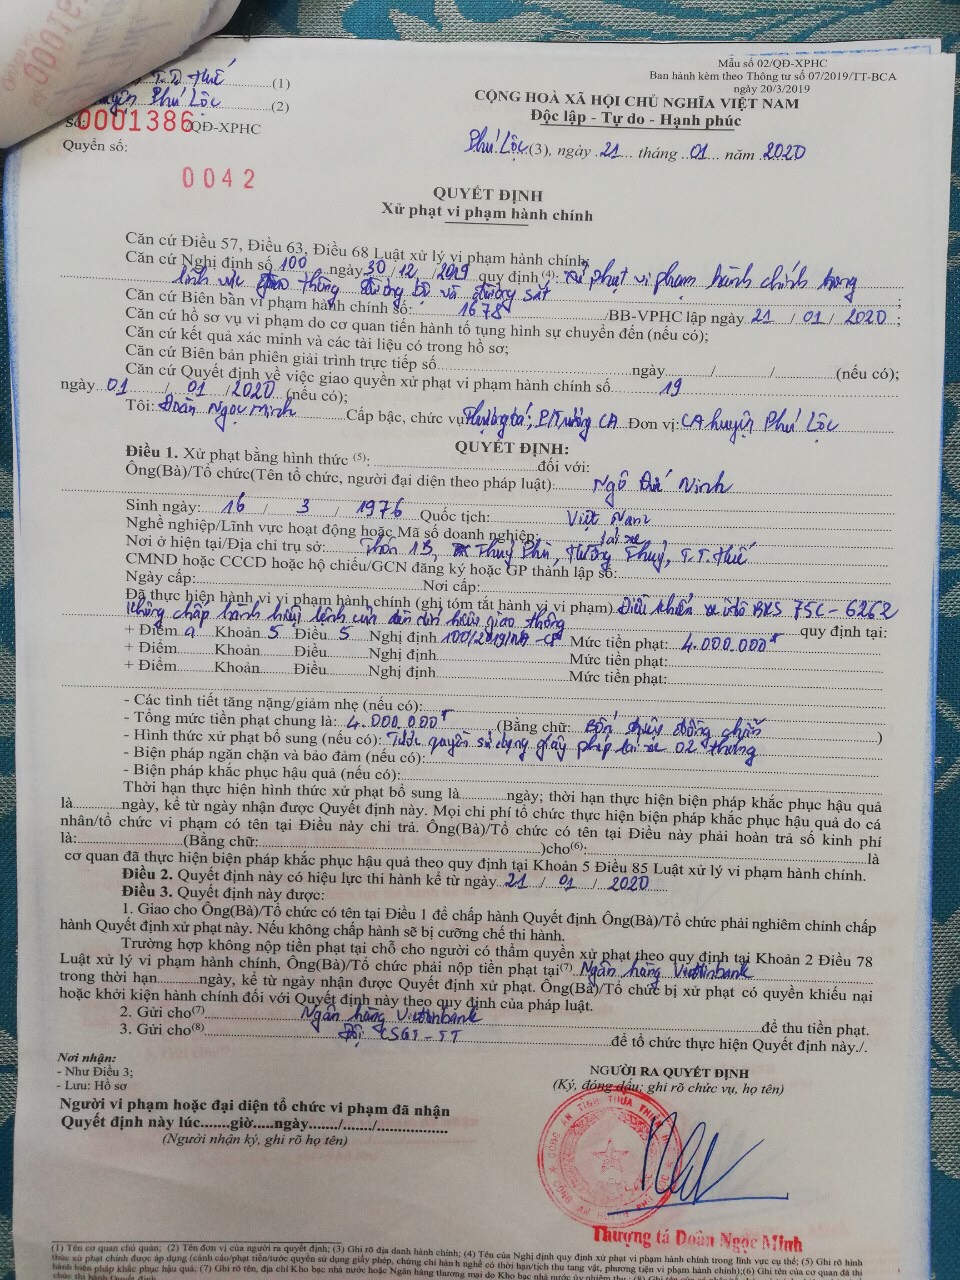 Mẫu số 02/QĐ-XPHC
Ban hành kèm theo Thông tư số 07/2019/TT-BCA
ngày 20/3/2019
T.T Huế (1)
Huyện Phú Lộc (2)
Số: 0001386 /QĐ-XPHC
Quyển số:
0042
CỘNG HOÀ XÃ HỘI CHỦ NGHĨA VIỆT NAM
Độc lập - Tự do - Hạnh phúc
Phú Lộc (3), ngày 21 tháng 01 năm 2020
QUYẾT ĐỊNH
Xử phạt vi phạm hành chính
Căn cứ Điều 57, Điều 63, Điều 68 Luật xử lý vi phạm hành chính;
Căn cứ Nghị định số 100 ngày 30/12/2019 quy định (4): Xử phạt vi phạm hành chính trong
lĩnh vực giao thông đường bộ và đường sắt ;
Căn cứ Biên bản vi phạm hành chính số: 1678 /BB-VPHC lập ngày 21/01/2020;
Căn cứ hồ sơ vụ vi phạm do cơ quan tiến hành tố tụng hình sự chuyển đến (nếu có);
Căn cứ kết quả xác minh và các tài liệu có trong hồ sơ;
Căn cứ Biên bản phiên giải trình trực tiếp số.....ngày...../...../.....(nếu có);
Căn cứ Quyết định về việc giao quyền xử phạt vi phạm hành chính số 19
ngày 01/01/2020 (nếu có);
Tôi: Đoàn Ngọc Minh Cấp bậc, chức vụ Thượng tá, P/Trưởng CA Đơn vị: CA huyện Phú Lộc
QUYẾT ĐỊNH:
Điều 1. Xử phạt bằng hình thức (5):.....đối với:
Ông(Bà)/Tổ chức(Tên tổ chức, người đại diện theo pháp luật): Ngô Đức Ninh
Sinh ngày: 16 / 3 / 1976 Quốc tịch: Việt Nam
Nghề nghiệp/Lĩnh vực hoạt động hoặc Mã số doanh nghiệp: Lái xe
Nơi ở hiện tại/Địa chỉ trụ sở: Thôn 1B, Thuỷ Phù, Hương Thuỷ, T.T.Huế
CMND hoặc CCCD hoặc hộ chiếu/GCN đăng ký hoặc GP thành lập số:
Ngày cấp:.....Nơi cấp:
Đã thực hiện hành vi vi phạm hành chính (ghi tóm tắt hành vi vi phạm) Điều khiển xe ôtô BKS 75C-6262
không chấp hành hiệu lệnh của đèn tín hiệu giao thông quy định tại:
+ Điểm a Khoản 5 Điều 5 Nghị định 100/2019/NĐ-CP Mức tiền phạt: 4.000.000đ
+ Điểm.....Khoản.....Điều.....Nghị định.....Mức tiền phạt:
+ Điểm.....Khoản.....Điều.....Nghị định.....Mức tiền phạt:
- Các tình tiết tăng nặng/giảm nhẹ (nếu có):
- Tổng mức tiền phạt chung là: 4.000.000đ (Bằng chữ: Bốn triệu đồng chẵn )
- Hình thức xử phạt bổ sung (nếu có): Tước quyền sử dụng giấy phép lái xe 02 tháng
- Biện pháp ngăn chặn và bảo đảm (nếu có):
- Biện pháp khắc phục hậu quả (nếu có):
Thời hạn thực hiện hình thức xử phạt bổ sung là.....ngày; thời hạn thực hiện biện pháp khắc phục hậu quả
là.....ngày, kể từ ngày nhận được Quyết định này. Mọi chi phí tổ chức thực hiện biện pháp khắc phục hậu quả do cá
nhân/tổ chức vi phạm có tên tại Điều này chi trả. Ông(Bà)/Tổ chức có tên tại Điều này phải hoàn trả số kinh phí
là:.....(Bằng chữ:.....)cho(6):.....là
cơ quan đã thực hiện biện pháp khắc phục hậu quả theo quy định tại Khoản 5 Điều 85 Luật xử lý vi phạm hành chính.
Điều 2. Quyết định này có hiệu lực thi hành kể từ ngày 21 / 01 / 2020
Điều 3. Quyết định này được:
1. Giao cho Ông(Bà)/Tổ chức có tên tại Điều 1 để chấp hành Quyết định. Ông(Bà)/Tổ chức phải nghiêm chỉnh chấp
hành Quyết định xử phạt này. Nếu không chấp hành sẽ bị cưỡng chế thi hành.
Trường hợp không nộp tiền phạt tại chỗ cho người có thẩm quyền xử phạt theo quy định tại Khoản 2 Điều 78
Luật xử lý vi phạm hành chính, Ông(Bà)/Tổ chức phải nộp tiền phạt tại(7) Ngân hàng Viettinbank
trong thời hạn.....ngày, kể từ ngày nhận được Quyết định xử phạt. Ông(Bà)/Tổ chức bị xử phạt có quyền khiếu nại
hoặc khởi kiện hành chính đối với Quyết định này theo quy định của pháp luật.
2. Gửi cho(7) Ngân hàng Viettinbank để thu tiền phạt.
3. Gửi cho(8) Đội CSGT-TT để tổ chức thực hiện Quyết định này./.
Nơi nhận:
- Như Điều 3;
- Lưu: Hồ sơ
Người vi phạm hoặc đại diện tổ chức vi phạm đã nhận
Quyết định này lúc.......giờ.....ngày......./......./.................
(Người nhận ký, ghi rõ họ tên)
NGƯỜI RA QUYẾT ĐỊNH
(Ký, đóng dấu; ghi rõ chức vụ, họ tên)
CÔNG AN TỈNH THỪA THIÊN
Thượng tá Đoàn Ngọc Minh
(1) Tên cơ quan chủ quản; (2) Tên đơn vị của người ra quyết định; (3) Ghi rõ địa danh hành chính; (4) Tên của Nghị định quy định xử phạt vi phạm hành chính trong lĩnh vực cụ thể; (5) Ghi rõ hình
thức xử phạt chính được áp dụng (cảnh cáo/phạt tiền/tước quyền sử dụng giấy phép, chứng chỉ hành nghề có thời hạn/tịch thu tang vật, phương tiện vi phạm hành chính);(6) Ghi tên của cơ quan đã